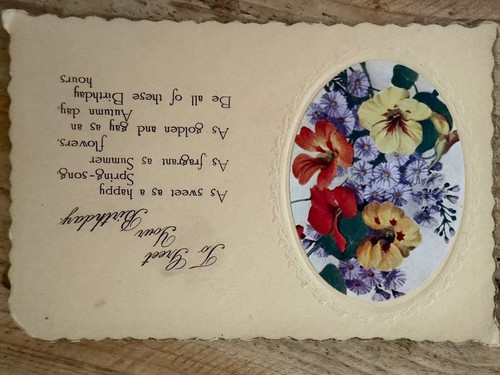 To Greet
Your
Birthday
As sweet as a happy
Spring-song
As fragrant as Summer
flowers,
As golden and gay as an
Autumn day,
Be all of these Birthday
hours